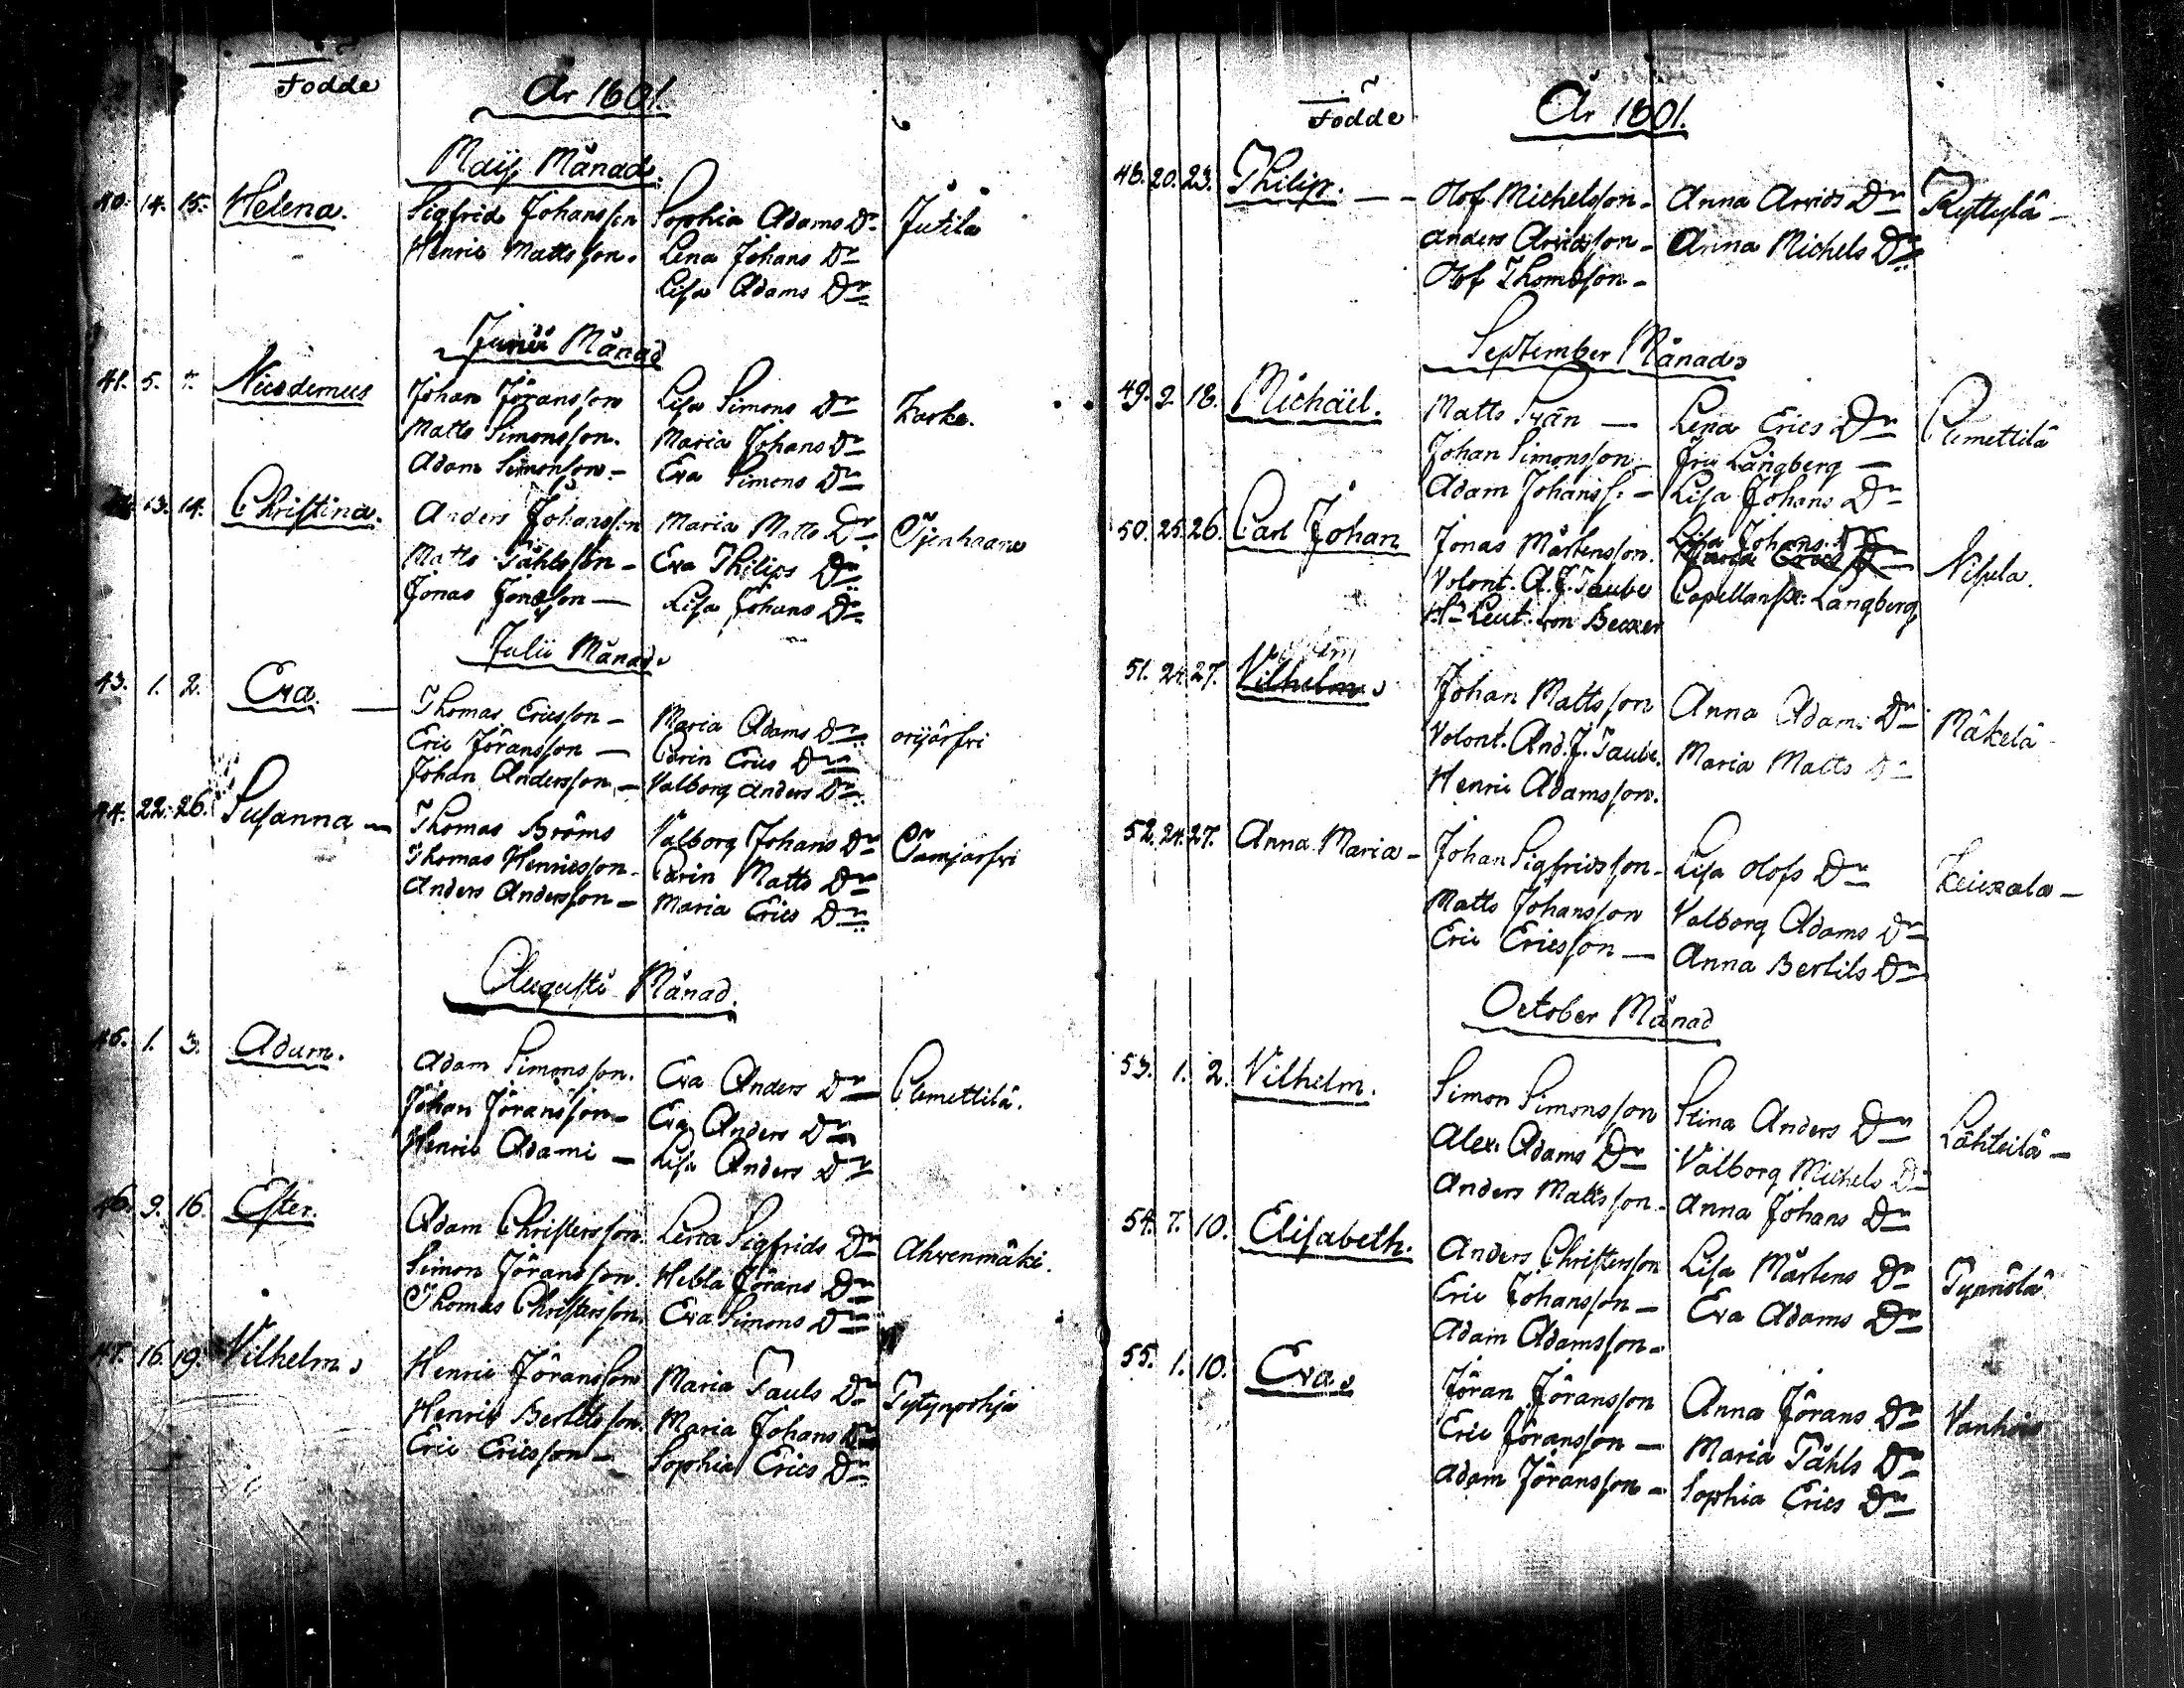 Födde
År 1801.
Maij Månad.
40. 14. 15. Helena. Sigfrid Johansson Sophia Adams Dr Jutila
Henric Mattsson. Lena Johans Dr
Lisa Adams Dr
Junii Månad
41. 5. 7. Nicodemus Johan Jöransson Lisa Simons Dr
Matts Simonsson. Maria Johans Dr
Adam Simonsson – Eva Simons Dr
13. 14. Christina. Anders Johansson Maria Matts Dr
Matts Påhlsson – Eva Philips Dr
Jonas Jonsson – Lisa Johans Dr
Julii Månad.
43. 1. 2. Eva. – Thomas Ericsson – Maria Adams Dr
Eric Jöransson – Carin Erics Dr
Johan Andersson – Valborg Anders Dr
44. 22. 26. Susanna – Thomas Broms Valborg Johans Dr
Thomas Henricsson – Carin Matts Dr
Anders Andersson – Maria Erics Dr
Augusti Månad.
45. 1. 3. Adam. Adam Simonsson. Eva Anders Dr Clemettilä.
Johan Jöransson – Eva Anders Dr
Henric Adami – Lisa Anders Dr
46. 9. 16. Ester. Adam Christersson. Lena Sigfrids Dr Ahvenmäki.
Simon Jöransson. Hebla Jörans Dr
Thomas Christersson. Eva Simons Dr
47. 16. 19. Vilhelm. Henric Jöransson Maria Pauls Dr Pytynpohja
Henric Bertilsson. Maria Johans Dr
Eric Ericsson – Sophia Erics Dr
Födde
År 1801.
48. 20. 23. Philip. – Olof Michelsson – Anna Arvids Dr Ryttylä –
Anders Arvidsson – Anna Michels Dr
Olof Thomasson –
September Månad
49. 2. 18. Michäel. Matts Svän – Lena Erics Dr Clemettilä
Johan Simonsson – Fru Långberg –
Adam Johanss. – Lisa Johans Dr
50. 25. 26. Carl Johan Jonas Mårtensson. Lisa Johans Dr Nisula.
Volont. A. J. Taube Capellansk: Långberg
Hr Leut. von Becker
51. 24. 27. Vilhelm Johan Mattsson Anna Adams Dr Mäkelä
Volont. And. J. Taube. Maria Matts Dr
Henric Adamsson.
52. 24. 27. Anna Maria – Johan Sigfridsson – Lisa Olofs Dr
Matts Johansson Valborg Adams Dr
Eric Ericsson – Anna Bertils Dr
October Månad
53. 1. 2. Vilhelm. Simon Simonsson Stina Anders Dr Lähteilä –
Alex. Adams Dr Valborg Michels Dr
Anders Mattsson – Anna Johans Dr
54. 7. 10. Elisabeth. Anders Christersson Lisa Mårtens Dr Pynnölä
Eric Johansson – Eva Adams Dr
Adam Adamsson –
55. 1. 10. Eva. Jöran Jöransson Anna Jörans Dr
Eric Jöransson – Maria Påhls Dr
Adam Jöransson – Sophia Erics Dr